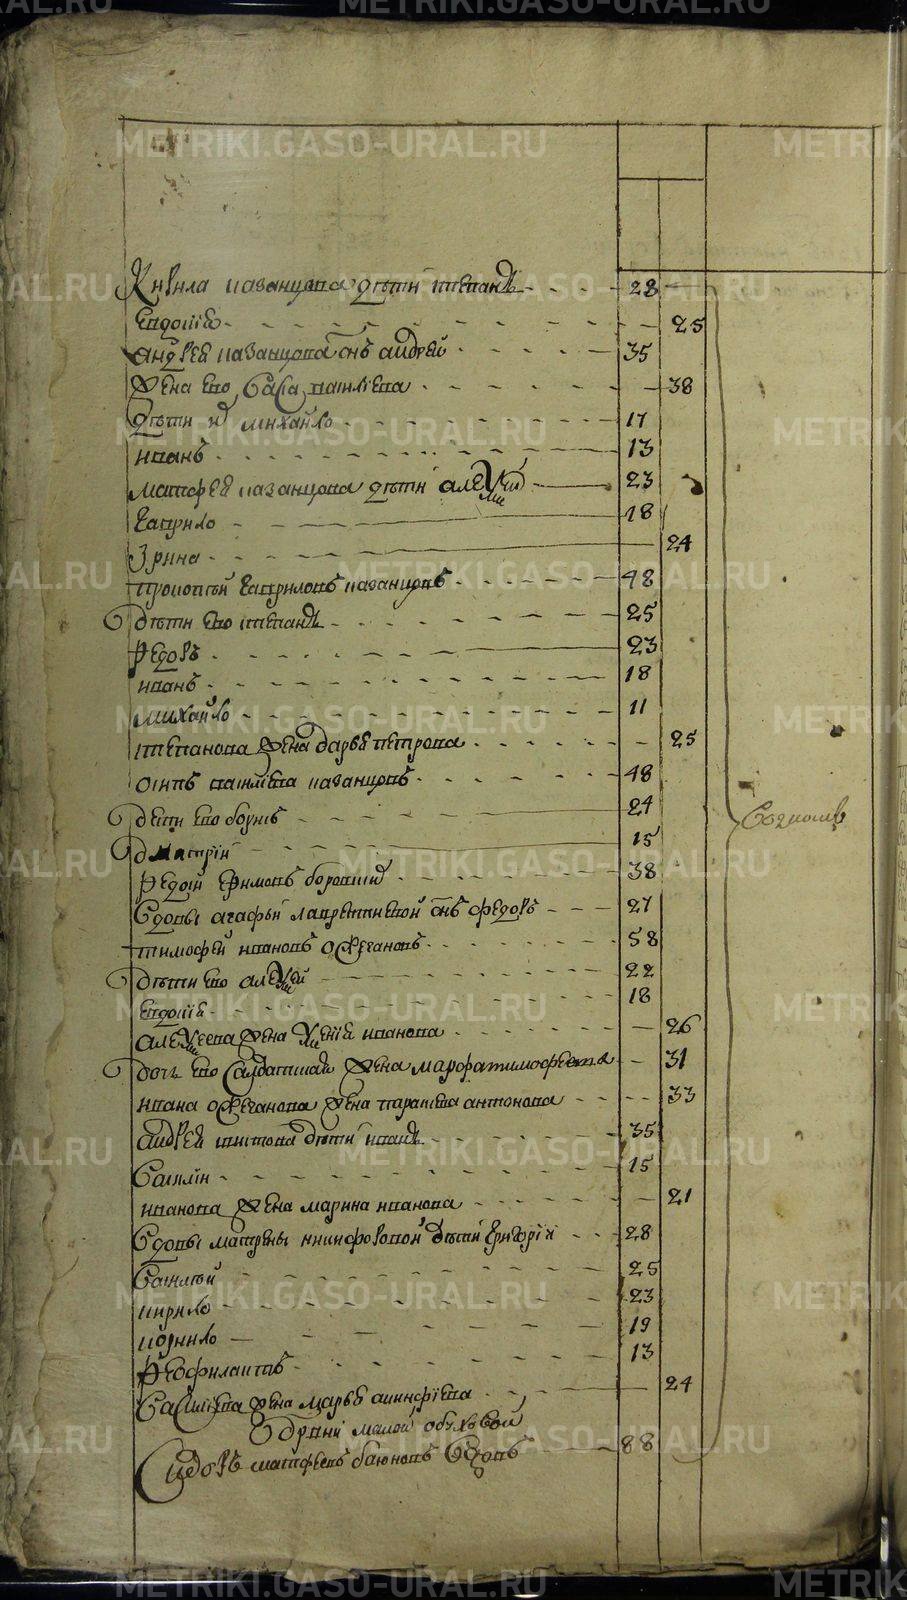 METRIKI.GASO-URAL.RU
Кирила казанцова дѣти степанъ 28
Евдокиѣ 25
андрея казанцова снъ андрей 35
жена ево васа василиева 38
дѣти их михайло 17
иванъ 13
матфея казанцова дѣти алеѯей 23
гаврило 18
Ирина 24
прокопей гавриловъ казанцовъ 48
дѣти ево степанъ 25
Ѳедоръ 23
иванъ 18
михайло 11
степанова жена дарья петрова 25
осипъ василиевъ казанцовъ 48
дети ево борисъ 24
дмитрий 15
Ѳедот ефимовъ 38
вдовы агафьи лаврентиевой снъ федоръ 27
тимофей ивановъ ожегановъ 58
дѣти ево алеѯей 22
евдокия 18
алеѯеева жена ѯения иванова 26
дочь ево салдатская жена марфа тимофеева 31
ивана ожеганова жена парасева антонова 33
андрея дѣти иванъ 35
василий 15
иванова жена марина иванова 21
вдовы матрены никифоровой дѣти григорий 28
василей 25
кирило 23
корнило 19
Ѳеофилактъ 13
василиева жена марья 24
деревни малой
Сидоръ матфеевъ вдовъ 88